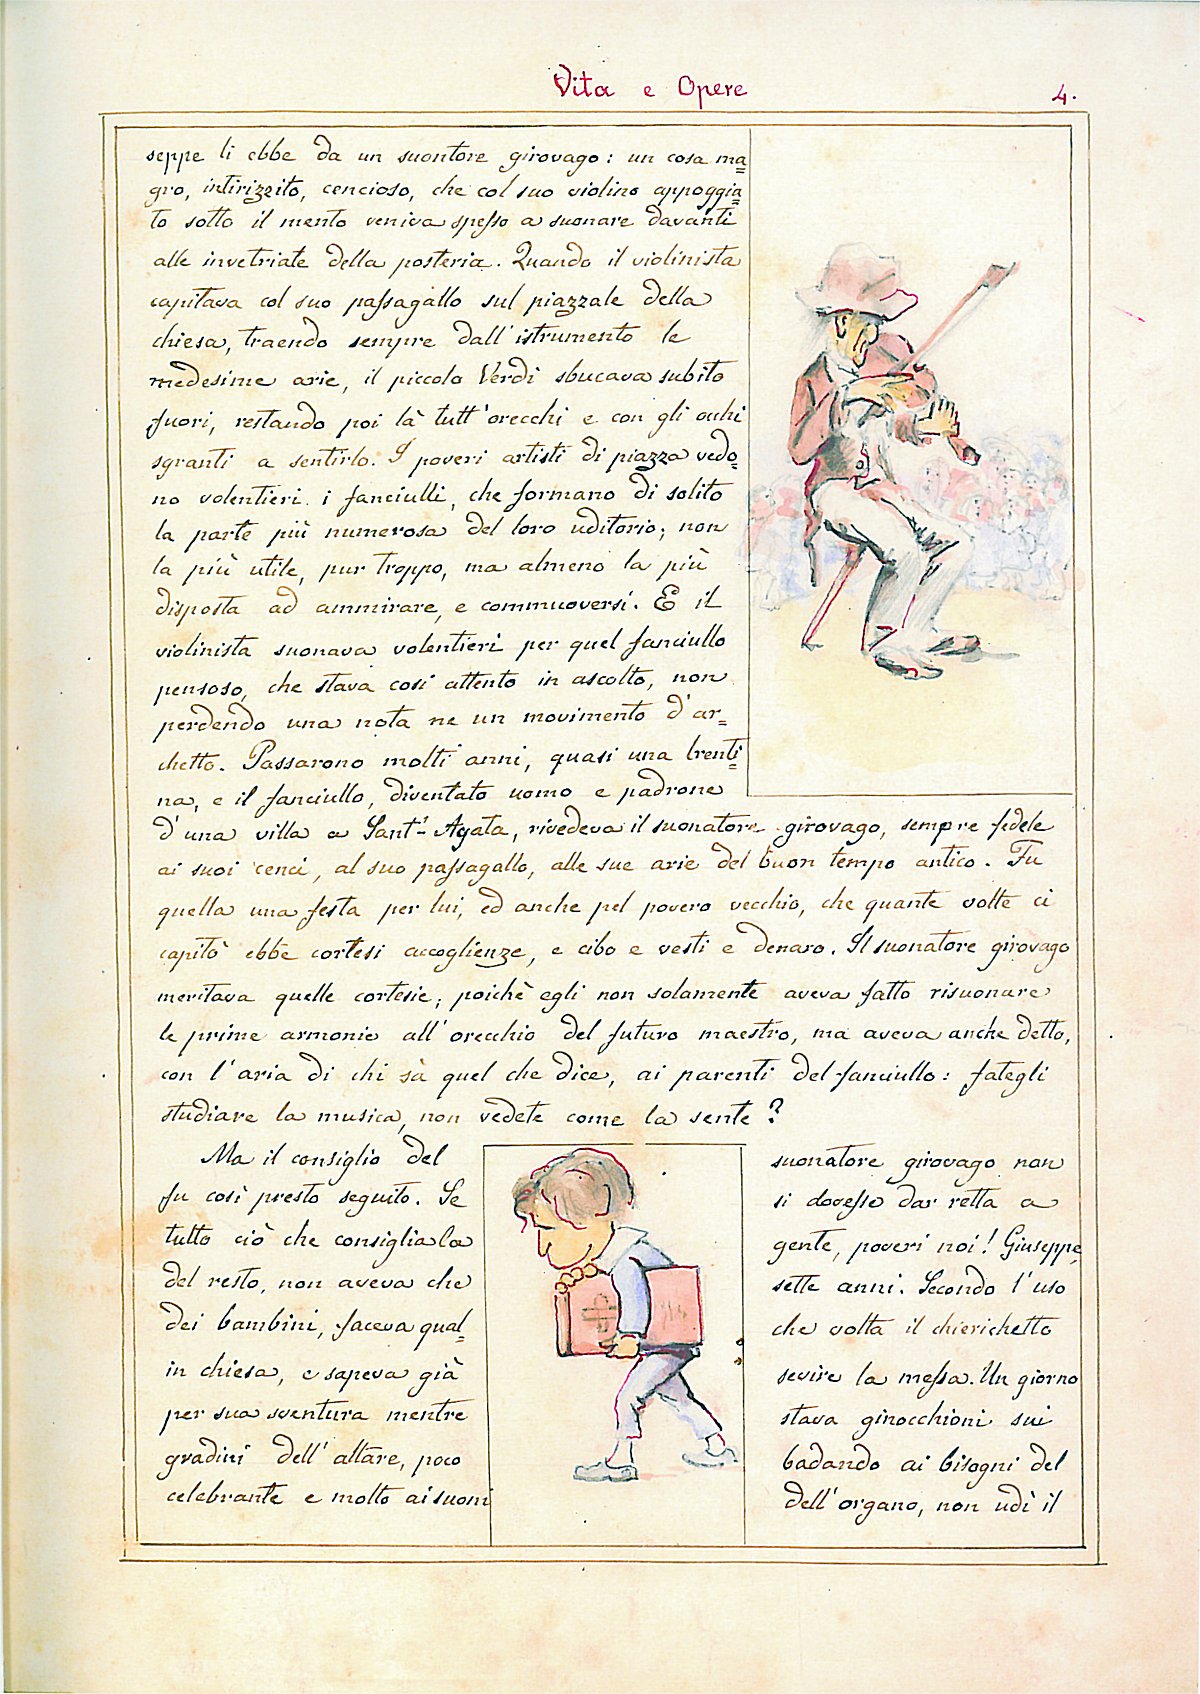 Vita e Opere
4.
seppe li ebbe da un suontore girovago: un cosa ma=
gro, intirizzito, cencioso, che col suo violino appoggia=
to sotto il mento veniva spesso a suonare davanti
alle invetriate della posteria. Quando il violinista
capitava col suo passagallo sul piazzale della
chiesa, traendo sempre dall'istrumento le
medesime arie, il piccolo Verdi sbucava subito
fuori, restando poi là tutt'orecchi e con gli occhi
sgranti a sentirlo. I poveri artisti di piazza vedo=
no volentieri i fanciulli, che formano di solito
la parte più numerosa del loro uditorio; non
la più utile, pur troppo, ma almeno la più
disposta ad ammirare, e commuoversi. E il
violinista suonava volentieri per quel fanciullo
pensoso, che stava così attento in ascolto, non
perdendo una nota ne un movimento d'ar=
chetto. Passarono molti anni, quasi una trenti=
na, e il fanciullo, diventato uomo e padrone
d'una villa a Sant'-Agata, rivedeva il suonatore girovago, sempre fedele
ai suoi cenci, al suo passagallo, alle sue arie del buon tempo antico. Fu
quella una festa per lui, ed anche pel povero vecchio, che quante volte ci
capitò ebbe cortesi accoglienze, e cibo e vesti e denaro. Il suonatore girovago
meritava quelle cortesie; poichè egli non solamente aveva fatto risuonare
le prime armonie all'orecchio del futuro maestro, ma aveva anche detto,
con l'aria di chi sà quel che dice, ai parenti del fanciullo: fategli
studiare la musica, non vedete come la sente?
Ma il consiglio del suonatore girovago non
fu così presto seguito. Se si dovesse dar retta a
tutto ciò che consiglia la gente, poveri noi! Giuseppe,
del resto, non aveva che sette anni. Secondo l'uso
dei bambini, faceva qual= che volta il chierichetto
in chiesa, e sapeva già sevire la messa. Un giorno
per sua sventura mentre stava ginocchioni sui
gradini dell'altare, poco badando ai bisogni del
celebrante e molto ai suoni dell'organo, non udì il